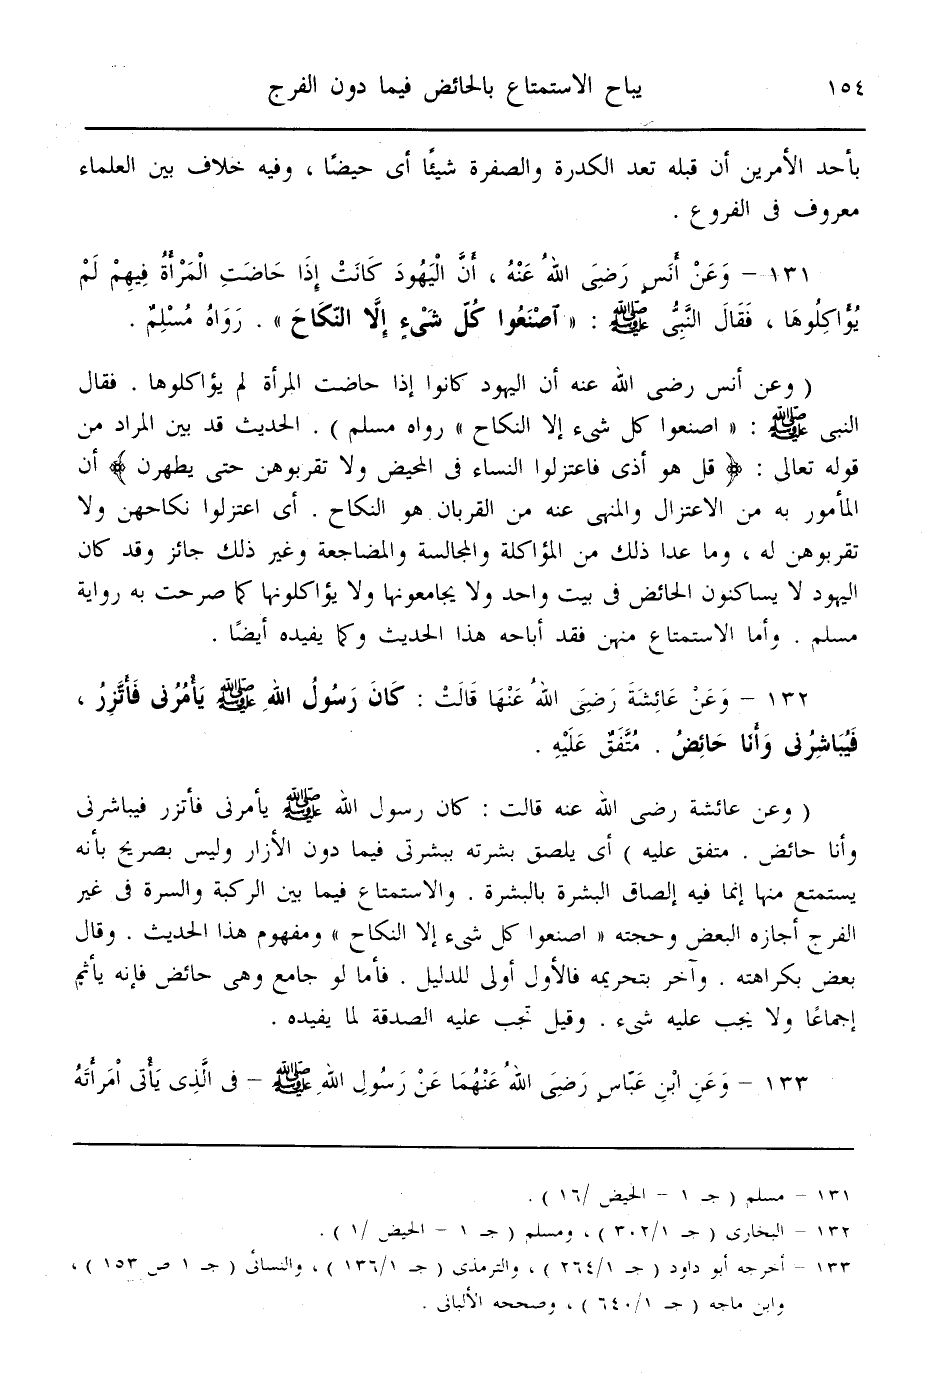 ١٥٤ يباح الاستمتاع بالحائض فيما دون الفرج
بأحد الأمرين أن قبله تعد الكدرة والصفرة شيئًا أى حيضًا ، وفيه خلاف بين العلماء
معروف فى الفروع .
١٣١ – وَعَنْ أَنَسٍ رَضِىَ اللهُ عَنْهُ ، أَنَّ الْيَهُودَ كَانَتْ إِذَا حَاضَتِ الْمَرْأَةُ فِيهِمْ لَمْ
يُؤَاكِلُوهَا ، فَقَالَ النَّبِىُّ ﷺ : « اصْنَعُوا كُلّ شَىْءٍ إلَّا النّكَاحَ » . رَوَاهُ مُسْلِمٌ .
( وعن أنس رضى الله عنه أن اليهود كانوا إذا حاضت المرأة لم يؤاكلوها . فقال
النبى ﷺ : « اصنعوا كل شىء إلا النكاح » رواه مسلم ) . الحديث قد بين المراد من
قوله تعالى : ﴿ قل هو أذى فاعتزلوا النساء فى المحيض ولا تقربوهن حتى يطهرن ﴾ أن
المأمور به من الاعتزال والمنهى عنه من القربان هو النكاح . أى اعتزلوا نكاحهن ولا
تقربوهن له ، وما عدا ذلك من المؤاكلة والمجالسة والمضاجعة وغير ذلك جائز وقد كان
اليهود لا يساكنون الحائض فى بيت واحد ولا يجامعونها ولا يؤاكلونها كما صرحت به رواية
مسلم . وأما الاستمتاع منهن فقد أباحه هذا الحديث وكما يفيده أيضًا .
١٣٢ – وَعَنْ عَائِشَةَ رَضِىَ اللهُ عَنْهَا قَالَتْ : كَانَ رَسُولُ اللهِ ﷺ يَأْمُرُنى فَأَتَّزِرُ ،
فَيُبَاشِرُنى وَأَنَا حَائِضُ . مُتَّفَقٌ عَلَيْهِ .
( وعن عائشة رضى الله عنه قالت : كان رسول الله ﷺ يأمرنى فأتزر فيباشرنى
وأنا حائض . متفق عليه ) أى يلصق بشرته ببشرتى فيما دون الأزار وليس بصريح بأنه
يستمتع منها إنما فيه إلصاق البشرة بالبشرة . والاستمتاع فيما بين الركبة والسرة فى غير
الفرج أجازه البعض وحجته « اصنعوا كل شىء إلا النكاح » ومفهوم هذا الحديث . وقال
بعض بكراهته . وآخر بتحريمه فالأول أولى للدليل . فأما لو جامع وهى حائض فإنه يأثم
إجماعًا ولا يجب عليه شىء . وقيل تجب عليه الصدقة لما يفيده .
١٣٣ – وَعَنِ ابْنِ عَبّاسٍ رَضِىَ اللهُ عَنْهُمَا عَنْ رَسُولِ اللهِ ﷺ – فى الَّذِى يَأْتى امْرَأَتَهُ
١٣١ – مسلم ( جـ ١ – الحيض /١٦ ) .
١٣٢ – البخارى ( جـ ٣٠٢/١ ) ، ومسلم ( جـ ١ – الحيض /١ ) .
١٣٣ – أخرجه أبو داود ( جـ ٢٦٤/١ ) ، والترمذى ( جـ ١٣٦/١ ) ، والنسائى ( جـ ١ ص ١٥٣ ) ،
وابن ماجه ( جـ ٦٤٠/١ ) ، وصححه الألبانى .